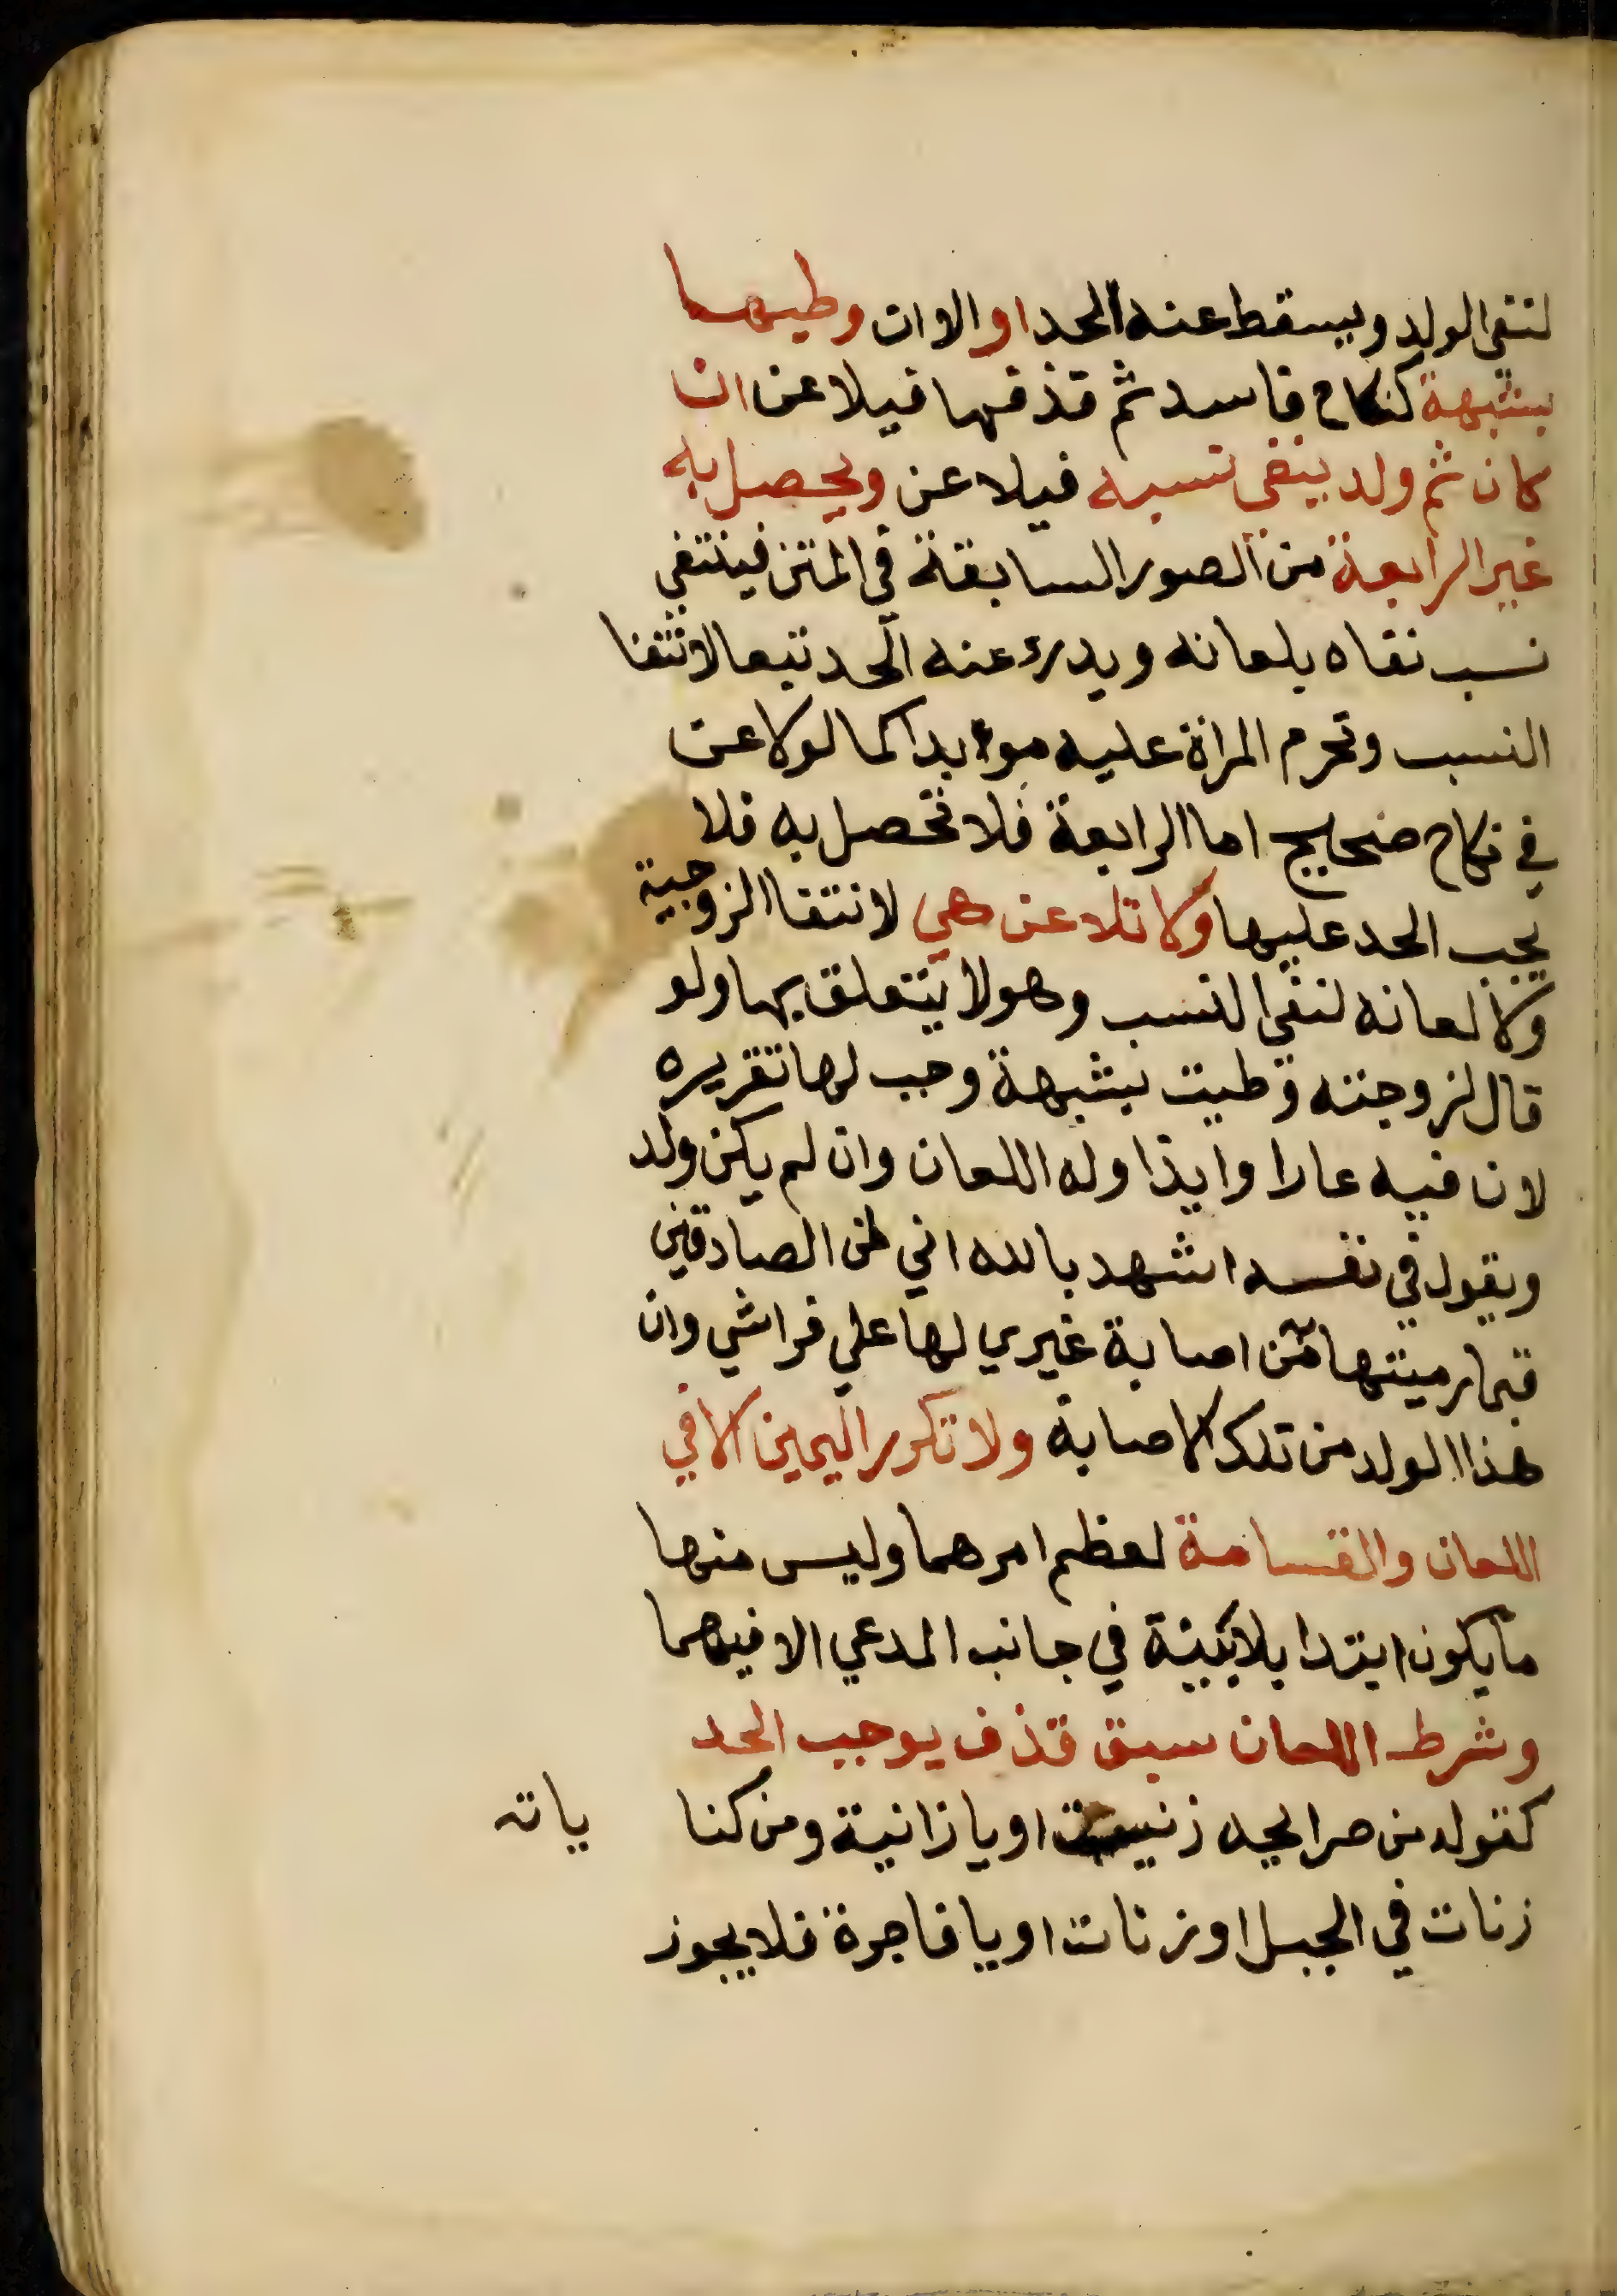 لنفي الولد ويسقط عنه الحد او الا ان وطيها
بشبهة كنكاح فاسد ثم قذفها فيلاعن ان
كان ثم ولد ينفي نسبه فيلاعن ويحصل به
غير الرابعة من الصور السابقة في المتن فينتفي
نسب نفاه بلعانه ويدرء عنه الحد تبعا لانتفا
النسب وتحرم المراة عليه موءبدا كما لو لاعن
في نكاح صحيح اما الرابعة فلا تحصل به فلا
يجب الحد عليها ولا تلاعن هي لانتفا الزوجية
ولان لعانه لنفي النسب وهو لا يتعلق بها ولو
قال لزوجته وطيت بشبهة وجب لها تقريره
لان فيه عارا وايذا وله اللعان وان لم يكن ولد
ويقول في نفسه اشهد بالله اني لمن الصادقين
فيما رميتها من اصابة غيري لها علي فراشي وان
هذا الولد من تلك الاصابة ولا تكرر اليمين الا في
اللعان والقسامة لعظم امرهما وليس منها
ما يكون ابتدا بلا بينة في جانب المدعي الا فيهما
وشرط اللعان سبق قذف يوجب الحد
كقوله من صرايحه زنيت او يا زانية ومن كنا ياته
زنات في الجبل او زنات او يا فاجرة فلا يجوز